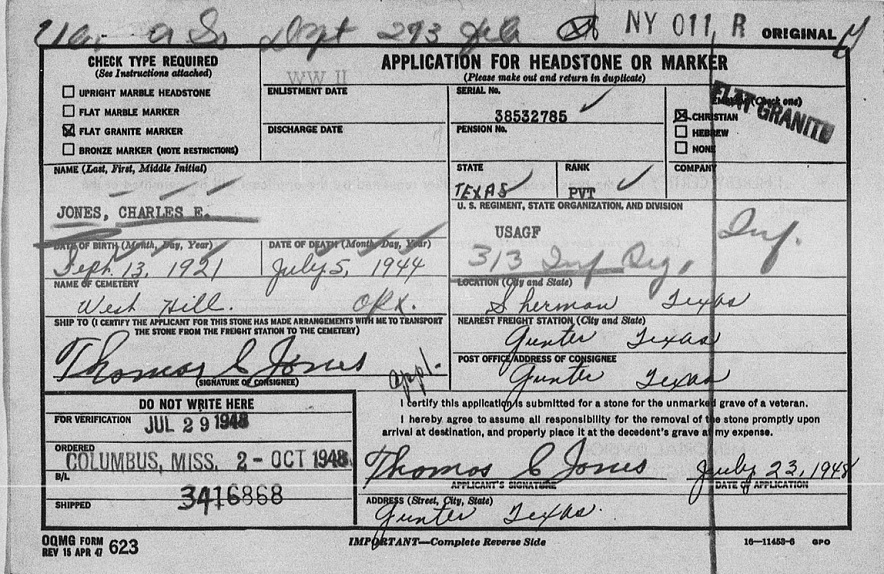 293
NY 011, R ORIGINAL
CHECK TYPE REQUIRED
(See Instructions attached)
UPRIGHT MARBLE HEADSTONE
FLAT MARBLE MARKER
FLAT GRANITE MARKER
BRONZE MARKER (NOTE RESTRICTIONS)
WW II
ENLISTMENT DATE
DISCHARGE DATE
APPLICATION FOR HEADSTONE OR MARKER
(Please make out and return in duplicate)
SERIAL No.
38532785
PENSION No.
EMBLEM (Check one)
CHRISTIAN
HEBREW
NONE
FLAT GRANITE
NAME (Last, First, Middle Initial)
JONES, CHARLES E.
STATE
TEXAS
RANK
PVT
COMPANY
U. S. REGIMENT, STATE ORGANIZATION, AND DIVISION
USAGF
313 Inf Reg, Inf.
DATE OF BIRTH (Month, Day, Year)
Sept. 13, 1921
DATE OF DEATH (Month, Day, Year)
July 5, 1944
NAME OF CEMETERY
West Hill.
LOCATION (City and State)
Sherman Texas
SHIP TO (I CERTIFY THE APPLICANT FOR THIS STONE HAS MADE ARRANGEMENTS WITH ME TO TRANSPORT
THE STONE FROM THE FREIGHT STATION TO THE CEMETERY)
Thomas C Jones
(SIGNATURE OF CONSIGNEE)
appl.
NEAREST FREIGHT STATION (City and State)
Gunter Texas
POST OFFICE ADDRESS OF CONSIGNEE
Gunter Texas
DO NOT WRITE HERE
FOR VERIFICATION JUL 29 1948
ORDERED
COLUMBUS, MISS. 2 - OCT 1948
B/L
3416868
SHIPPED
I certify this application is submitted for a stone for the unmarked grave of a veteran.
I hereby agree to assume all responsibility for the removal of the stone promptly upon
arrival at destination, and properly place it at the decedent's grave at my expense.
Thomas C Jones July 23, 1948
APPLICANT'S SIGNATURE DATE OF APPLICATION
ADDRESS (Street, City, State)
Gunter Texas.
OQMG FORM
REV 15 APR 47 623
IMPORTANT—Complete Reverse Side
16—11453-6 GPO